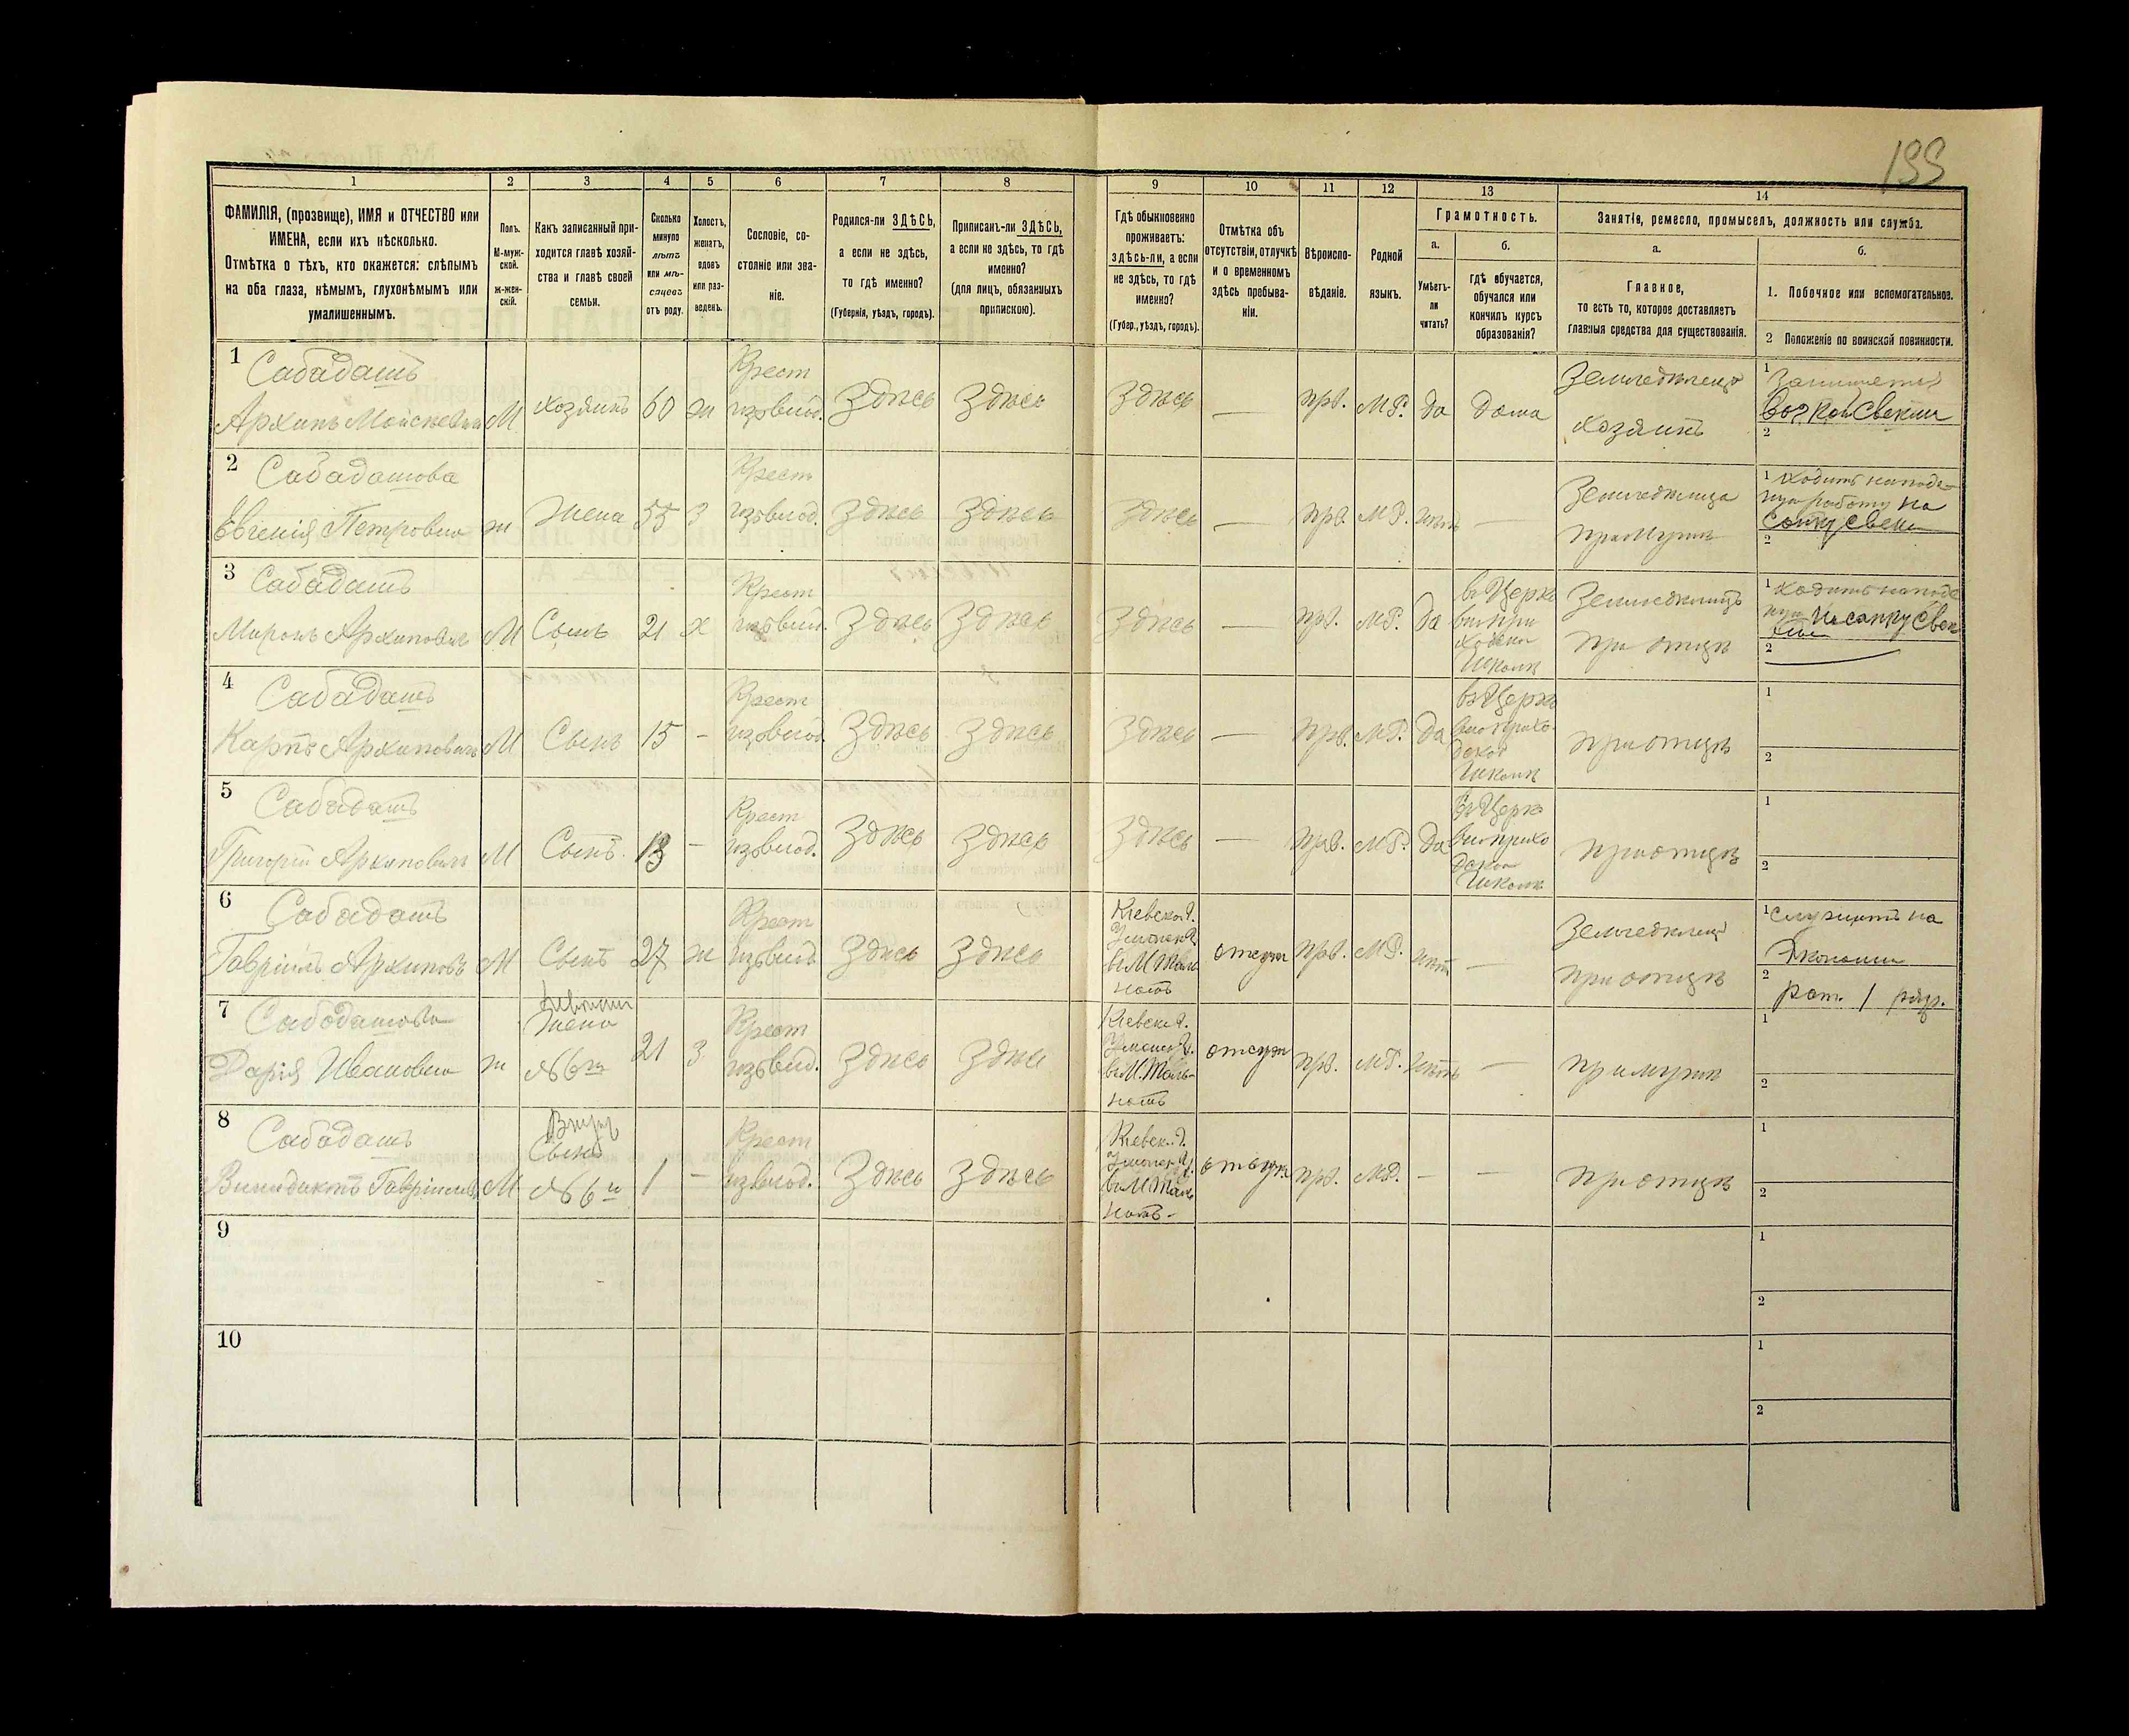 133
1 2 3 4 5 6 7 8 9 10 11 12 13 14
ФАМИЛІЯ, (прозвище), ИМЯ и ОТЧЕСТВО или
ИМЕНА, если ихъ нѣсколько.
Отмѣтка о тѣхъ, кто окажется: слѣпымъ
на оба глаза, нѣмымъ, глухонѣмымъ или
умалишеннымъ.
Полъ.
М-муж-
ской.
Ж-жен-
скій.
Какъ записанный при-
ходится главѣ хозяй-
ства и главѣ своей
семьи.
Сколько
минуло
лѣтъ
или мѣ-
сяцевъ
отъ роду.
Холостъ,
женатъ,
вдовъ
или раз-
веденъ.
Сословіе, со-
стояніе или зва-
ніе.
Родился-ли ЗДѢСЬ,
а если не здѣсь,
то гдѣ именно?
(Губернія, уѣздъ, городъ).
Приписанъ-ли ЗДѢСЬ,
а если не здѣсь, то гдѣ
именно?
(для лицъ, обязанныхъ
припискою).
Гдѣ обыкновенно
проживаетъ:
здѣсь-ли, а если
не здѣсь, то гдѣ
именно?
(Губер., уѣздъ, городъ).
Отмѣтка объ
отсутствіи, отлучкѣ
и о временномъ
здѣсь пребыва-
ніи.
Вѣроиспо-
вѣданіе.
Родной
языкъ.
Грамотность.
а.
Умѣетъ-
ли
читать?
б.
гдѣ обучается,
обучался или
кончилъ курсъ
образованія?
Занятія, ремесло, промыселъ, должность или служба.
а.
Главное,
то есть то, которое доставляетъ
главныя средства для существованія.
б.
1. Побочное или вспомогательное.
2 Положеніе по воинской повинности.
1 Сабадашъ
Архипъ Моисѣевичъ М хозяинъ 60 ж
Крест
изъ влад. Здѣсь Здѣсь Здѣсь — прв. МР. да дома
Земледѣлецъ
хозяинъ
1
2
2 Сабадашова
Евгенія Петровна ж Жена 55 З
Крест
изъ влад. Здѣсь Здѣсь Здѣсь — прв. МР. нѣтъ —
Земледѣлица
при мужѣ
1 ходитъ на поде-
работу на
2
3 Сабадашъ
Миронъ Архиповичъ М Сынъ 21 х
Крест
изъ влад. Здѣсь Здѣсь Здѣсь — прв. МР. да
въ Церко
вно при
Школѣ
Земледѣлецъ
при отцѣ
1 ходитъ на
на сапку
2
4 Сабадашъ
Карпъ Архиповичъ М Сынъ 15 -
Крест
изъ влад. Здѣсь Здѣсь Здѣсь — прв. МР. да
въ Церко
вно прихо
дской
Школѣ
при отцѣ
1
2
5 Сабадашъ
Григорій Архиповичъ М Сынъ 13 -
Крест
изъ влад. Здѣсь Здѣсь Здѣсь — прав. МР. да
въ Церко
вно прихо
дской
Школѣ
при отцѣ
1
2
6 Сабадашъ
Гавріилъ Архиповъ М Сынъ 27 ж
Крест
изъ влад. Здѣсь Здѣсь
Кіевск. г.
въ М. Таль
номъ
отсут прав. МР. нѣтъ —
Земледѣлецъ
при отцѣ
1 Служитъ на
Экономіи
2 рат. 1 разр.
7 Сабадашова
Дарія Ивановна ж
Невѣстка
Жена
№ 6го
21 З
Крест
изъ влад. Здѣсь Здѣсь
Кіевск. г.
въ М. Таль-
номъ
отсут прв. МР. нѣтъ —
при мужѣ
1
2
8 Сабадашъ
М
Внукъ
Сынъ
№ 6го
1 -
Крест
изъ влад. Здѣсь Здѣсь
Кіевск. г.
въ М. Таль
номъ-
отсут прв. МР. — —
при отцѣ
1
2
9
1
2
10
1
2